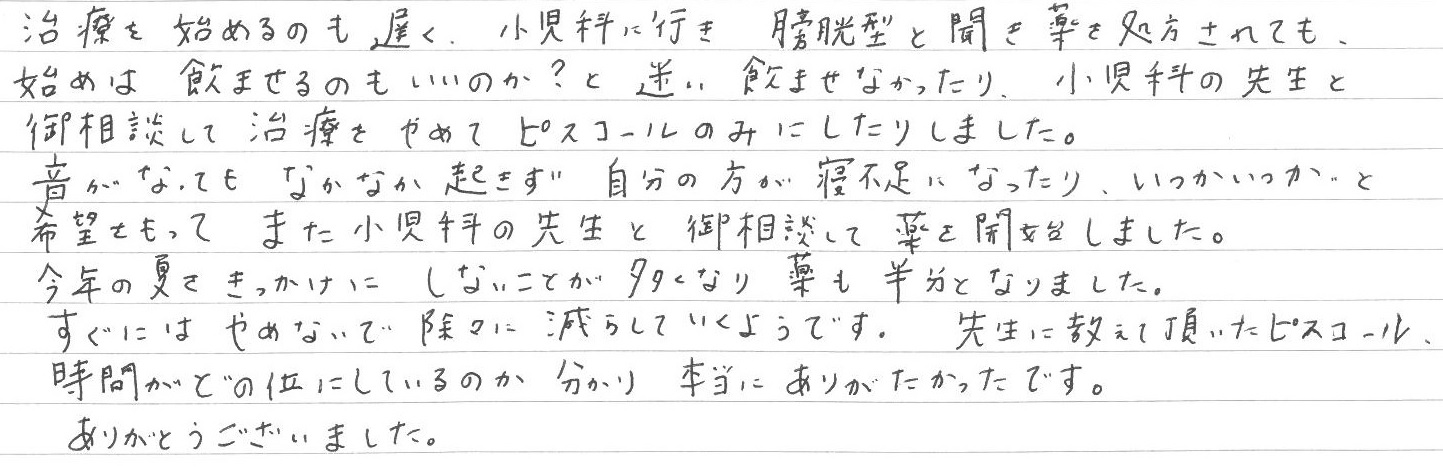 治療を始めるのも遅く、小児科に行き 膀胱型と聞き薬を処方されても、
始めは 飲ませるのもいいのか?と 迷い 飲ませなかったり、小児科の先生と
御相談して 治療を やめて ピスコールのみにしたりしました。
音がなっても なかなか起きず 自分の方が寝不足になったり、いつかいつかと
希望をもって また小児科の先生と 御相談して 薬を開始しました。
今年の夏を きっかけに しないことが 多くなり 薬も 半分となりました。
すぐには やめないで 除々に 減らしていくようです。 先生に教えて頂いたピスコール、
時間がどの位にしているのか 分かり 本当に ありがたかったです。
ありがとうございました。